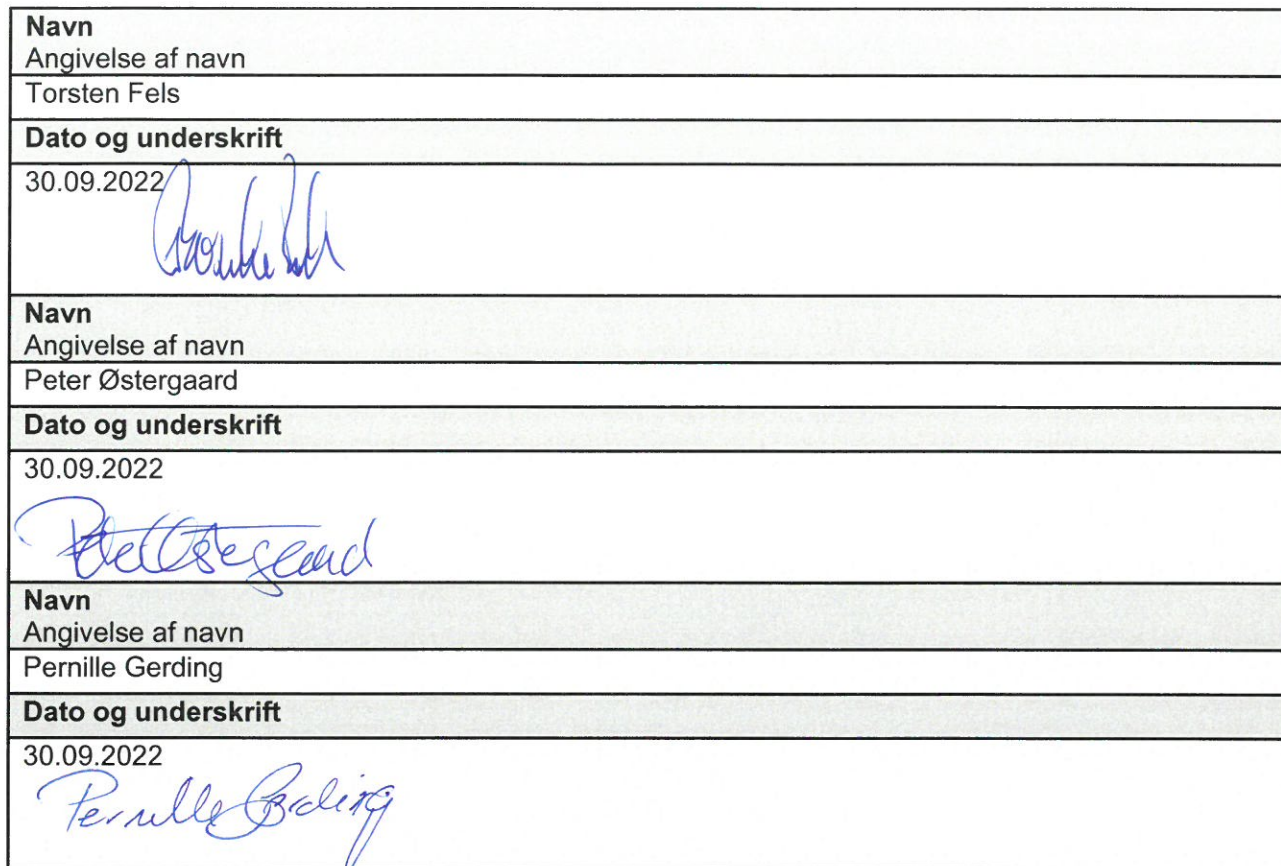 Navn
Angivelse af navn
Torsten Fels
Dato og underskrift
30.09.2022
Navn
Angivelse af navn
Peter Østergaard
Dato og underskrift
30.09.2022
Peter Østergaard
Navn
Angivelse af navn
Pernille Gerding
Dato og underskrift
30.09.2022
Pernille Gerding